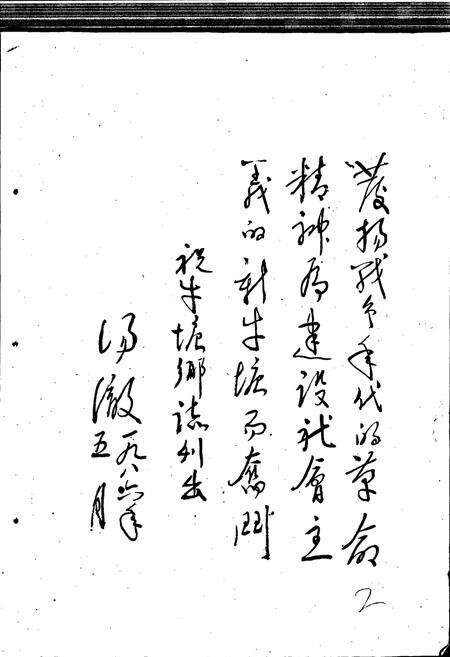 發揚战争年代的革命
精神為建設社會主
義的新牛塘而奮鬥
祝牛塘鄉誌刊出
湯澈
一九八六年
五月
2